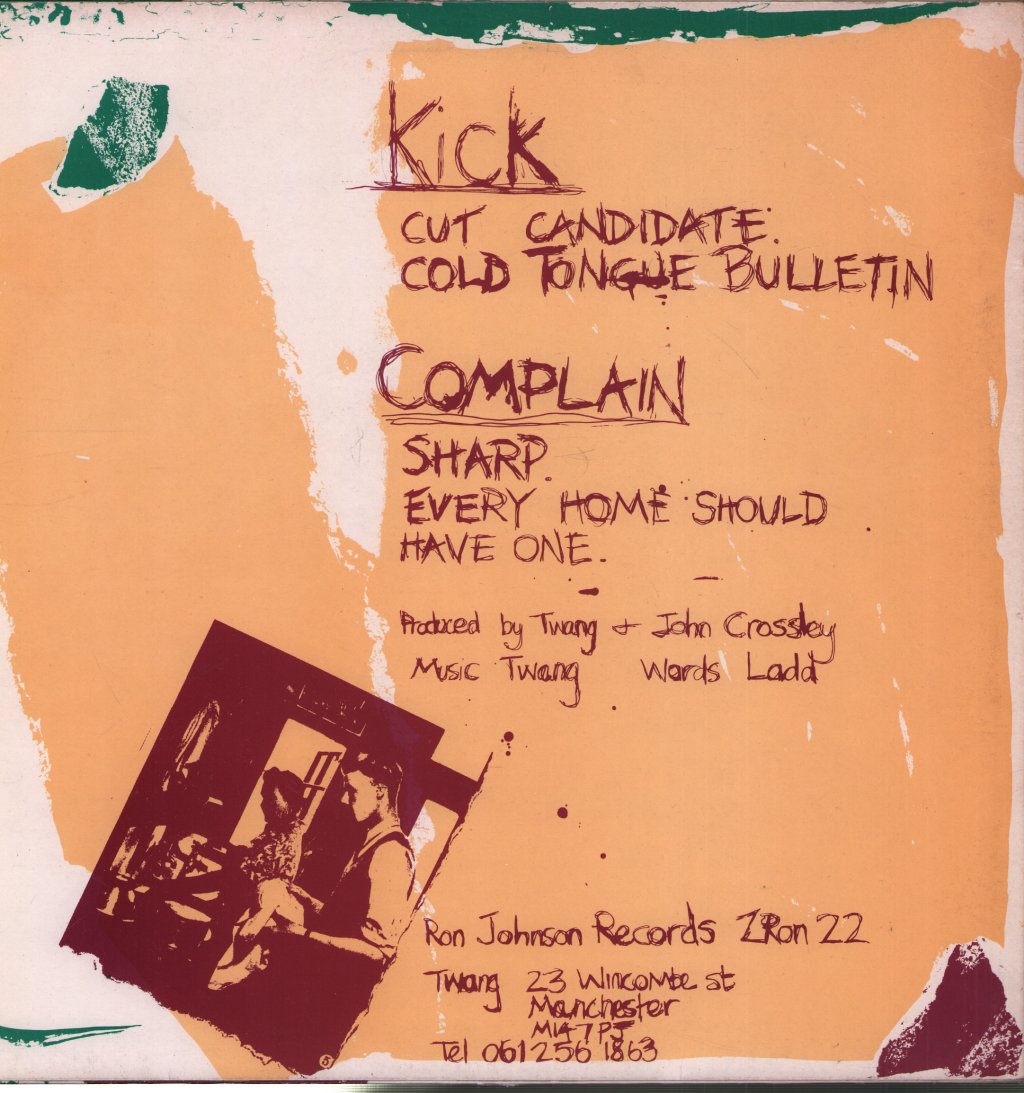 Kick
CUT CANDIDATE.
COLD TONGUE BULLETIN
COMPLAIN
SHARP.
EVERY HOME SHOULD
HAVE ONE.
Produced by Twang + John Crossley
Music Twang Words Ladd
Ron Johnson Records ZRon 22
Twang 23 Wincombe st
Manchester
M14 7PJ
Tel 061 256 1863